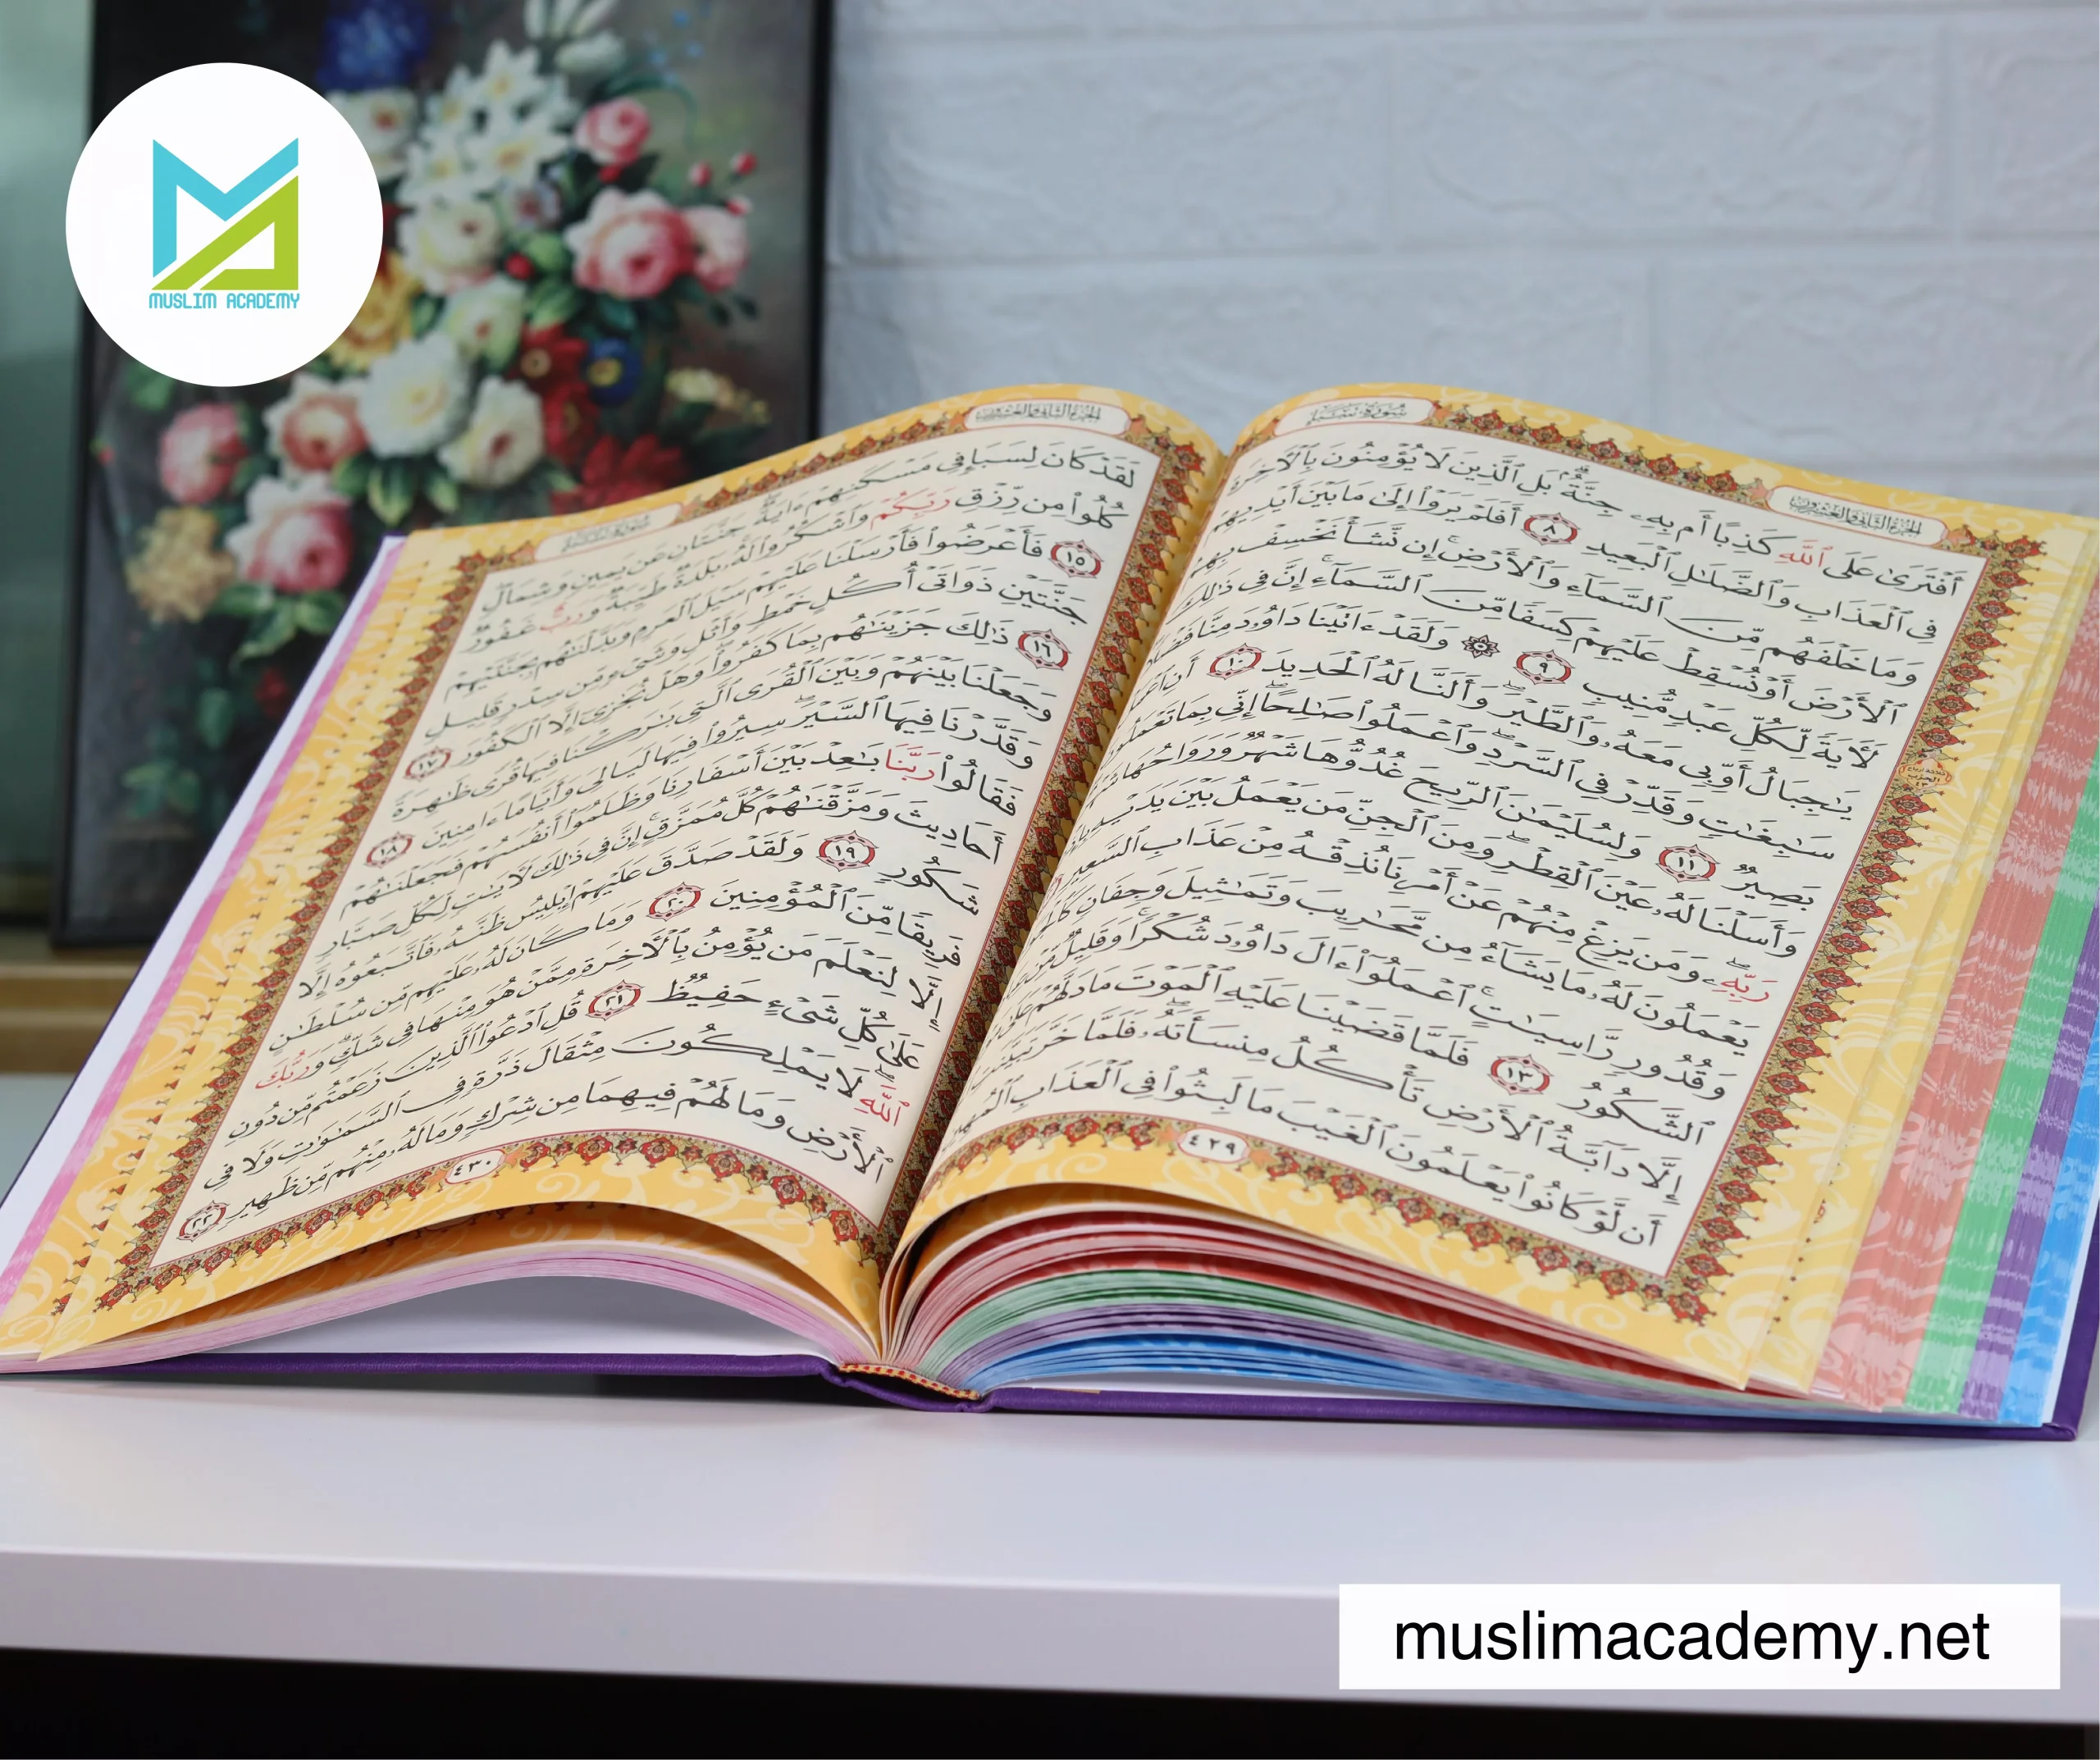 سُورَةُ سَبَإٍ
الجزء الثاني والعشرون
أَفْتَرَىٰ عَلَى ٱللَّهِ كَذِبًا أَم بِهِۦ جِنَّةٌۢ ۗ بَلِ ٱلَّذِينَ لَا يُؤْمِنُونَ بِٱلْـَٔاخِرَةِ
فِى ٱلْعَذَابِ وَٱلضَّلَـٰلِ ٱلْبَعِيدِ ٨ أَفَلَمْ يَرَوْا۟ إِلَىٰ مَا بَيْنَ أَيْدِيهِمْ
وَمَا خَلْفَهُم مِّنَ ٱلسَّمَآءِ وَٱلْأَرْضِ ۚ إِن نَّشَأْ نَخْسِفْ بِهِمُ
ٱلْأَرْضَ أَوْ نُسْقِطْ عَلَيْهِمْ كِسَفًا مِّنَ ٱلسَّمَآءِ ۚ إِنَّ فِى ذَٰلِكَ
لَـَٔايَةً لِّكُلِّ عَبْدٍ مُّنِيبٍ ٩ ۞ وَلَقَدْ ءَاتَيْنَا دَاوُۥدَ مِنَّا فَضْلًا
يَـٰجِبَالُ أَوِّبِى مَعَهُۥ وَٱلطَّيْرَ ۖ وَأَلَنَّا لَهُ ٱلْحَدِيدَ ١٠ أَنِ ٱعْمَلْ
سَـٰبِغَـٰتٍ وَقَدِّرْ فِى ٱلسَّرْدِ ۖ وَٱعْمَلُوا۟ صَـٰلِحًا ۖ إِنِّى بِمَا تَعْمَلُونَ
بَصِيرٌ ١١ وَلِسُلَيْمَـٰنَ ٱلرِّيحَ غُدُوُّهَا شَهْرٌ وَرَوَاحُهَا
وَأَسَلْنَا لَهُۥ عَيْنَ ٱلْقِطْرِ ۖ وَمِنَ ٱلْجِنِّ مَن يَعْمَلُ بَيْنَ يَدَيْهِ
رَبِّهِۦ ۖ وَمَن يَزِغْ مِنْهُمْ عَنْ أَمْرِنَا نُذِقْهُ مِنْ عَذَابِ ٱلسَّعِيرِ
يَعْمَلُونَ لَهُۥ مَا يَشَآءُ مِن مَّحَـٰرِيبَ وَتَمَـٰثِيلَ وَجِفَانٍ
وَقُدُورٍ رَّاسِيَـٰتٍ ۚ ٱعْمَلُوٓا۟ ءَالَ دَاوُۥدَ شُكْرًا ۚ وَقَلِيلٌ مِّنْ
ٱلشَّكُورُ ١٣ فَلَمَّا قَضَيْنَا عَلَيْهِ ٱلْمَوْتَ مَا دَلَّهُمْ عَلَىٰ
إِلَّا دَآبَّةُ ٱلْأَرْضِ تَأْكُلُ مِنسَأَتَهُۥ ۖ فَلَمَّا خَرَّ تَبَيَّنَتِ
أَن لَّوْ كَانُوا۟ يَعْلَمُونَ ٱلْغَيْبَ مَا لَبِثُوا۟ فِى ٱلْعَذَابِ ٱلْمُهِينِ
٤٢٩
الجزء الثاني والعشرون
سُورَةُ سَبَإٍ
لَقَدْ كَانَ لِسَبَإٍ فِى مَسْكَنِهِمْ ءَايَةٌ ۖ جَنَّتَانِ عَن يَمِينٍ وَشِمَالٍ ۖ
كُلُوا۟ مِن رِّزْقِ رَبِّكُمْ وَٱشْكُرُوا۟ لَهُۥ ۚ بَلْدَةٌ طَيِّبَةٌ وَرَبٌّ غَفُورٌ
١٥ فَأَعْرَضُوا۟ فَأَرْسَلْنَا عَلَيْهِمْ سَيْلَ ٱلْعَرِمِ وَبَدَّلْنَـٰهُم بِجَنَّتَيْهِمْ
جَنَّتَيْنِ ذَوَاتَىْ أُكُلٍ خَمْطٍ وَأَثْلٍ وَشَىْءٍ مِّن سِدْرٍ قَلِيلٍ
١٦ ذَٰلِكَ جَزَيْنَـٰهُم بِمَا كَفَرُوا۟ ۖ وَهَلْ نُجَـٰزِىٓ إِلَّا ٱلْكَفُورَ ١٧
وَجَعَلْنَا بَيْنَهُمْ وَبَيْنَ ٱلْقُرَى ٱلَّتِى بَـٰرَكْنَا فِيهَا قُرًى ظَـٰهِرَةً
وَقَدَّرْنَا فِيهَا ٱلسَّيْرَ ۖ سِيرُوا۟ فِيهَا لَيَالِىَ وَأَيَّامًا ءَامِنِينَ ١٨
فَقَالُوا۟ رَبَّنَا بَـٰعِدْ بَيْنَ أَسْفَارِنَا وَظَلَمُوٓا۟ أَنفُسَهُمْ فَجَعَلْنَـٰهُمْ
أَحَادِيثَ وَمَزَّقْنَـٰهُمْ كُلَّ مُمَزَّقٍ ۚ إِنَّ فِى ذَٰلِكَ لَـَٔايَـٰتٍ لِّكُلِّ صَبَّارٍ
شَكُورٍ ١٩ وَلَقَدْ صَدَّقَ عَلَيْهِمْ إِبْلِيسُ ظَنَّهُۥ فَٱتَّبَعُوهُ إِلَّا
فَرِيقًا مِّنَ ٱلْمُؤْمِنِينَ ٢٠ وَمَا كَانَ لَهُۥ عَلَيْهِم مِّن سُلْطَـٰنٍ
إِلَّا لِنَعْلَمَ مَن يُؤْمِنُ بِٱلْـَٔاخِرَةِ مِمَّنْ هُوَ مِنْهَا فِى شَكٍّ ۗ وَرَبُّكَ
عَلَىٰ كُلِّ شَىْءٍ حَفِيظٌ ٢١ قُلِ ٱدْعُوا۟ ٱلَّذِينَ زَعَمْتُم مِّن دُونِ
ٱللَّهِ ۖ لَا يَمْلِكُونَ مِثْقَالَ ذَرَّةٍ فِى ٱلسَّمَـٰوَٰتِ وَلَا فِى
ٱلْأَرْضِ وَمَا لَهُمْ فِيهِمَا مِن شِرْكٍ وَمَا لَهُۥ مِنْهُم مِّن ظَهِيرٍ ٢٢
٤٣٠
MUSLIM ACADEMY
muslimacademy.net